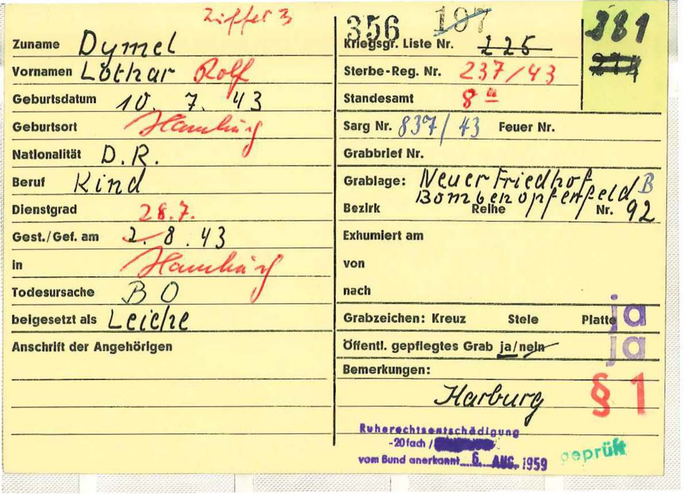 Ziffer 3
356 197 381
Zuname Dymel
Kriegsgr. Liste Nr. 225
Vornamen Lothar Rolf
Sterbe-Reg. Nr. 237/43
Geburtsdatum 10. 7. 43
Standesamt 8a
Geburtsort Hamburg
Sarg Nr. 837/43 Feuer Nr.
Nationalität D.R.
Grabbrief Nr.
Beruf Kind
Grablage: Neuer Friedhof B
Bombenopferfeld
Dienstgrad
Bezirk Reihe Nr. 92
28.7.
Gest./Gef. am 2. 8. 43
Exhumiert am
in Hamburg
von
Todesursache BO
nach
beigesetzt als Leiche
Grabzeichen: Kreuz Stele Platte ja
Anschrift der Angehörigen
Öffentl. gepflegtes Grab ja/nein ja
Bemerkungen:
Harburg § 1
Ruherechtsentschädigung
-20fach /
vom Bund anerkannt 6. AUG. 1959
geprüft